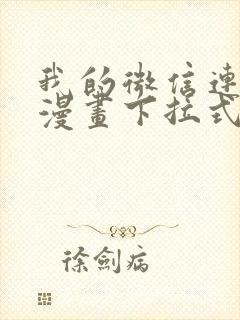 我的微信連
漫畫下拉式
徐劍病